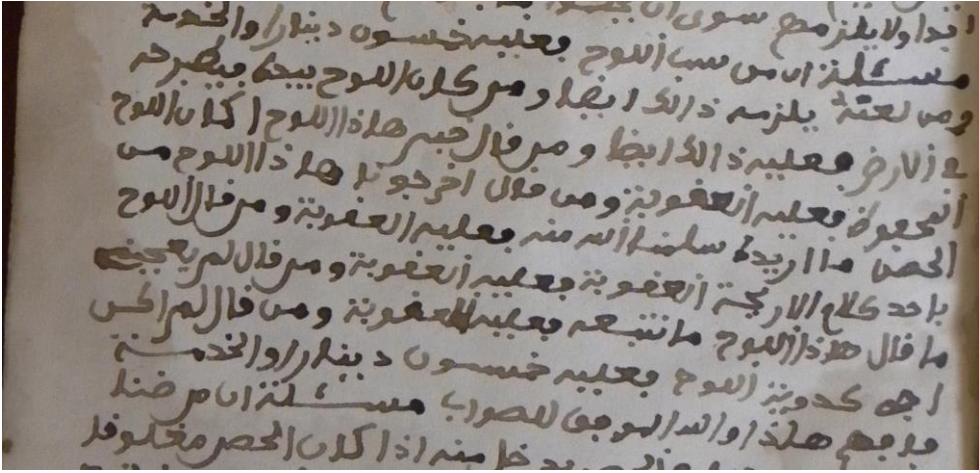 ابدا ولا يلزمه سوى ان
مسئلة ان من سب اللوح فعليه خمسون دينارا والخدمة
ومن لعنه يلزمه ذالك ايضا ومن كان اللوح بيده فيطرحه
في الارض فعليه ذالك ايضا ومن قال هاذا اللوح اكان اللوح
المحفوظ فعليه العقوبة ومن قال اخرجونا هاذا اللوح من
الحصن ما سلمنا الله منه فعليه العقوبة ومن قال اللوح
ياخد كلام العقوبة فعليه العقوبة ومن قال لم يعجبني
ما قال هاذا اللوح ما نتبعه فعليه العقوبة ومن قال لم
اللوح فعليه خمسون دينارا والخدمة
فافهم هاذا والله الموفق للصواب مسئلة ان
يدخل منه اذا كان الحصن مغلوقا